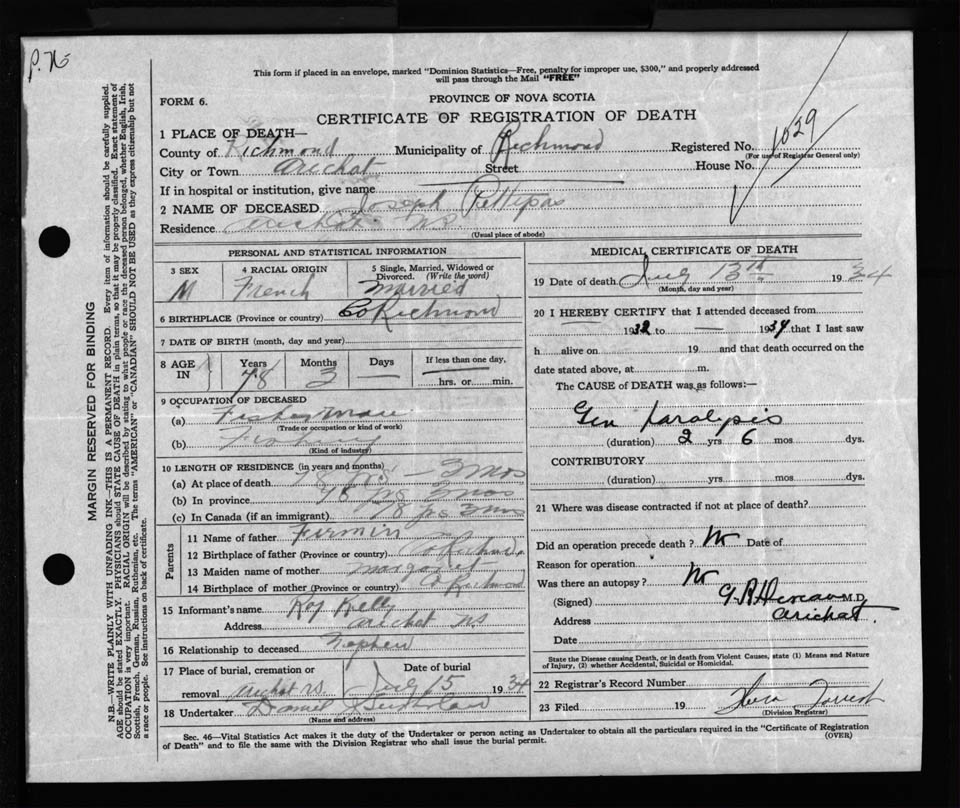 P. 76
This form if placed in an envelope, marked "Dominion Statistics—Free, penalty for improper use, $300," and properly addressed
will pass through the Mail "FREE"
FORM 6.
PROVINCE OF NOVA SCOTIA
CERTIFICATE OF REGISTRATION OF DEATH
1029
1 PLACE OF DEATH—
County of Richmond Municipality of Richmond Registered No.
(For use of Registrar General only)
City or Town Arichat Street House No.
If in hospital or institution, give name
2 NAME OF DECEASED Joseph Pettipas
Residence Arichat NS
(Usual place of abode)
PERSONAL AND STATISTICAL INFORMATION
3 SEX 4 RACIAL ORIGIN 5 Single, Married, Widowed or
Divorced. (Write the word)
M French Married
6 BIRTHPLACE (Province or country) Co Richmond
7 DATE OF BIRTH (month, day and year)
8 AGE IN Years Months Days If less than one day,
78 3 — hrs. or min.
9 OCCUPATION OF DECEASED
(a) Fisherman
(Trade or occupation or kind of work)
(b) Fishing
(Kind of industry)
10 LENGTH OF RESIDENCE (in years and months)
(a) At place of death 78 yrs 3 mos
(b) In province 78 yrs 3 mos
(c) In Canada (if an immigrant) 78 yrs 3 mos
Parents
11 Name of father Firmin
12 Birthplace of father (Province or country) Co Richmd.
13 Maiden name of mother Margaret
14 Birthplace of mother (Province or country) Co Richmond
15 Informant's name Kelly
Address Arichat NS
16 Relationship to deceased Nephew
17 Place of burial, cremation or removal Date of burial
Arichat NS July 15 1934
18 Undertaker Daniel
(Name and address)
MEDICAL CERTIFICATE OF DEATH
19 Date of death July 13th 1934
(Month, day and year)
20 I HEREBY CERTIFY that I attended deceased from
1932 to — 1934 that I last saw
h alive on 19 and that death occurred on the
date stated above, at m.
The CAUSE of DEATH was as follows:—
Gen Paralysis
(duration) 2 yrs 6 mos dys.
CONTRIBUTORY
(duration) yrs. mos. dys.
21 Where was disease contracted if not at place of death?
Did an operation precede death? No Date of
Reason for operation
Was there an autopsy? No
(Signed) M.D.
Address Arichat.
Date
State the Disease causing Death, or in death from Violent Causes, state (1) Means and Nature
of Injury, (2) whether Accidental, Suicidal or Homicidal.
22 Registrar's Record Number
23 Filed 19
(Division Registrar)
Sec. 46—Vital Statistics Act makes it the duty of the Undertaker or person acting as Undertaker to obtain all the particulars required in the "Certificate of Registration
of Death" and to file the same with the Division Registrar who shall issue the burial permit. (OVER)
MARGIN RESERVED FOR BINDING
N.B.—WRITE PLAINLY WITH UNFADING INK—THIS IS A PERMANENT RECORD. Every item of information should be carefully supplied.
AGE should be stated EXACTLY. PHYSICIANS should STATE CAUSE OF DEATH in plain terms, so that it may be properly classified. Exact statement of
OCCUPATION is very important. RACIAL ORIGIN will be described by stating to what people or race the deceased person belonged, whether English, Irish,
Scottish, French, German, Russian, Ruthenian, etc. The terms "AMERICAN" or "CANADIAN" SHOULD NOT BE USED as they express citizenship but not
a race or people. See instructions on back of certificate.